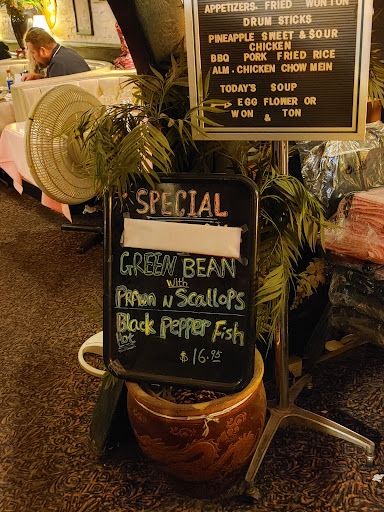 SPECIAL
APPETIZERS. FRIED WONTON
DRUM STICKS
PINEAPPLE SWEET & SOUR
CHICKEN
BBQ PORK FRIED RICE
ALM. CHICKEN CHOW MEIN
TODAY'S SOUP
EGG FLOWER OR
WON & TON
SPECIAL
GREEN BEAN
with
PRAWN N SCALLOPS
Black Pepper Fish
Hot
$16.95